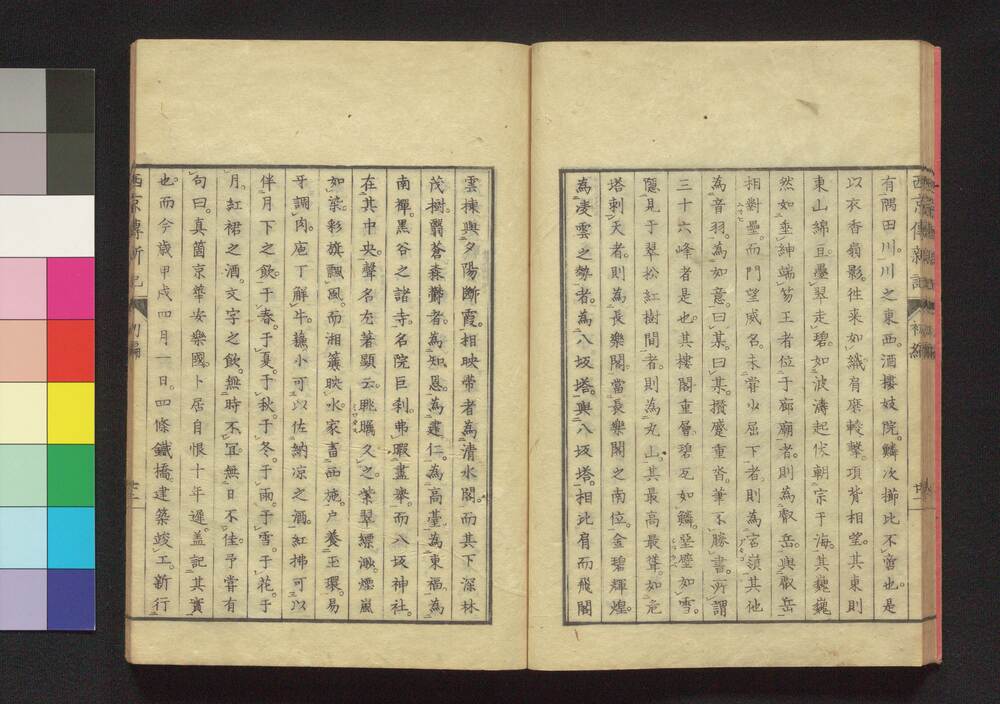 有隅田川川之東西酒樓妓院鱗次擳比不啻也是
以衣香翦影徃来如織肩摩轂撃項背相望其東則
東山綿亘疊翠走碧如波濤起伏朝宗于海其巍巍
然如垂紳端笏王者位于廊廟者則為叡岳與叡岳
相對壘而門望威名未甞少屈下者則為宕嶺其他
為音羽為如意曰某曰某攢蹙重沓筆不勝書所謂
三十六峰者是也其樓閣重層碧瓦如鱗堊壁如雪
隱見于翠松紅樹間者則為丸山其最高最聳如危
塔刺天者則為長樂閣當長樂閣之南位金碧輝煌
為凌雲之勢者為八坂塔與八坂塔相比肩而飛閣
雲棟與夕陽斷霞相映帯者為清水閣而其下深林
茂樹翳蒼森欝者為知恩為建仁為高臺為東福為
南禪黒谷之諸寺名院巨刹弗暇盡舉而八坂神社
在其中央聲名尤著顯云眺矚久之紫翠縹渺煙嵐
如染彩旗飄風而湘簾映水家畜西施户養玉環易
牙調肉庖丁解牛蘸小可以佐納凉之酒紅拂可以
伴月下之飲于春于夏于秋于冬于雨于雪于花于
月紅裙之酒文字之飲無時不冝無日不佳予甞有
句曰真箇京華安樂國卜居自恨十年遲盖記其實
也而今歳甲戌四月一日四條鐵橋建築竣工新行
西京傳新記 初編